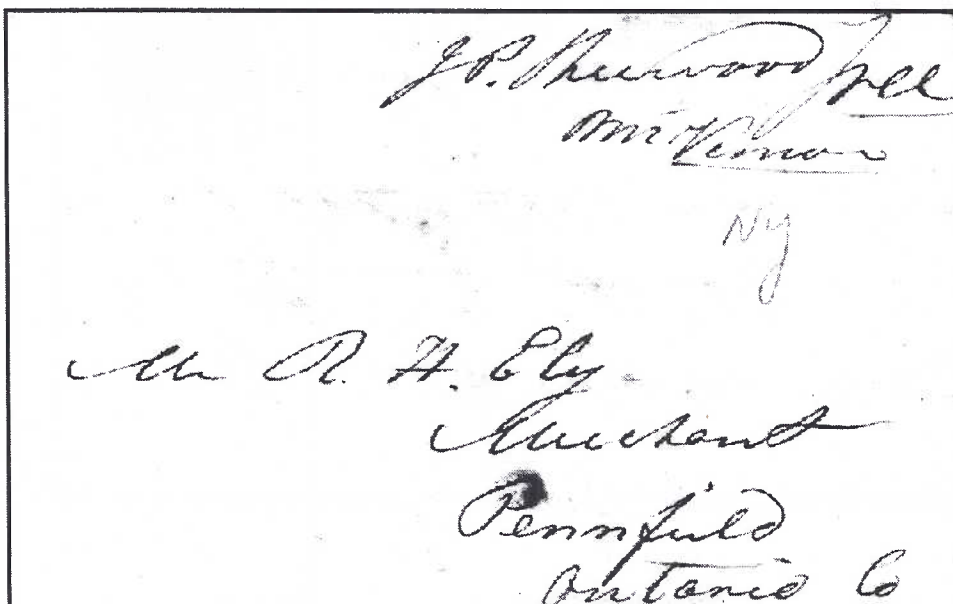 J.P. Sherwood Free
Mt Vernon
Ny
Mr R. H. Ely
Merchant
Pennfield
Ontario Co